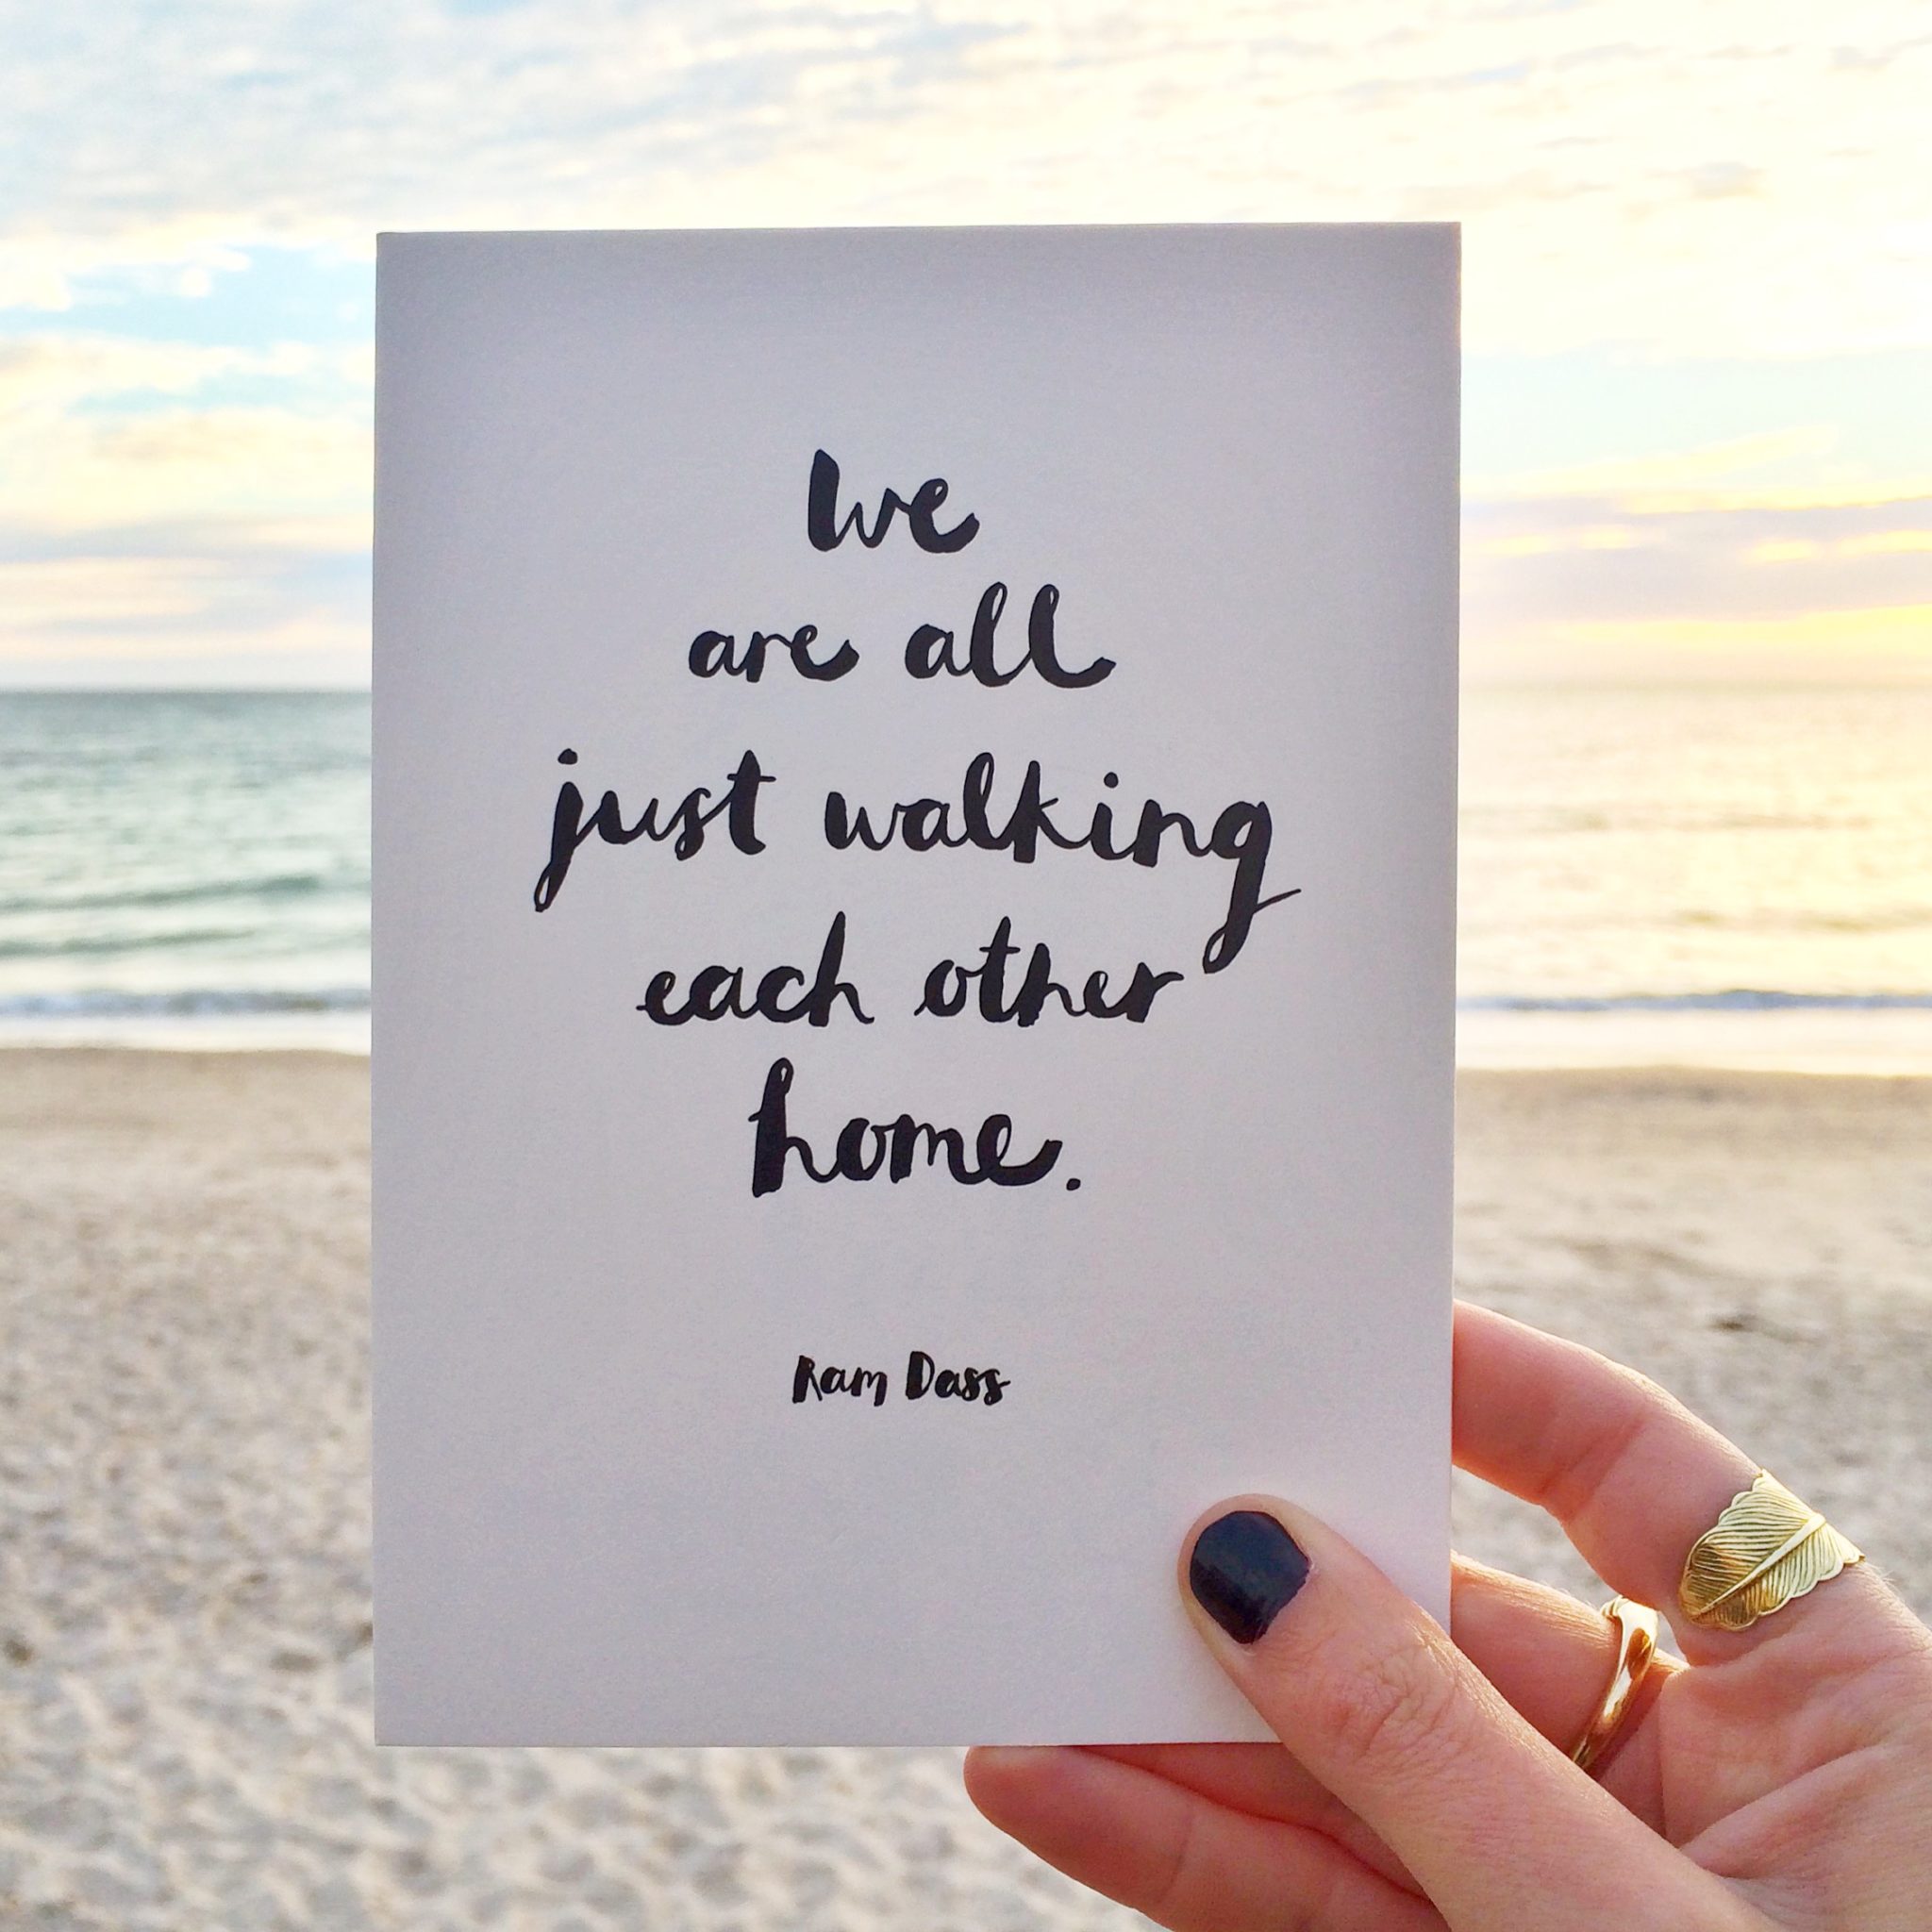 We
are all
just walking
each other
home.
Ram Dass